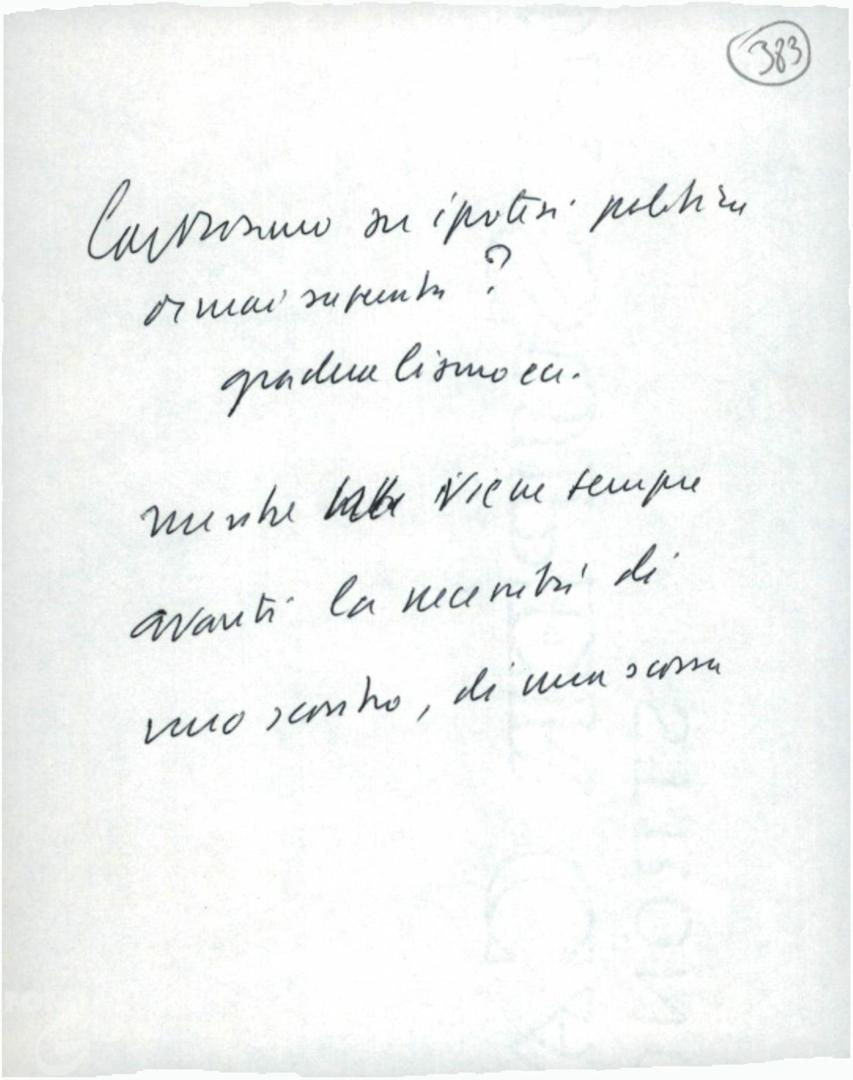 383
su ipotesi politica
ormai superata?
gradualismo ecc.
mentre viene sempre
avanti la necessità di
uno scontro, di una scossa